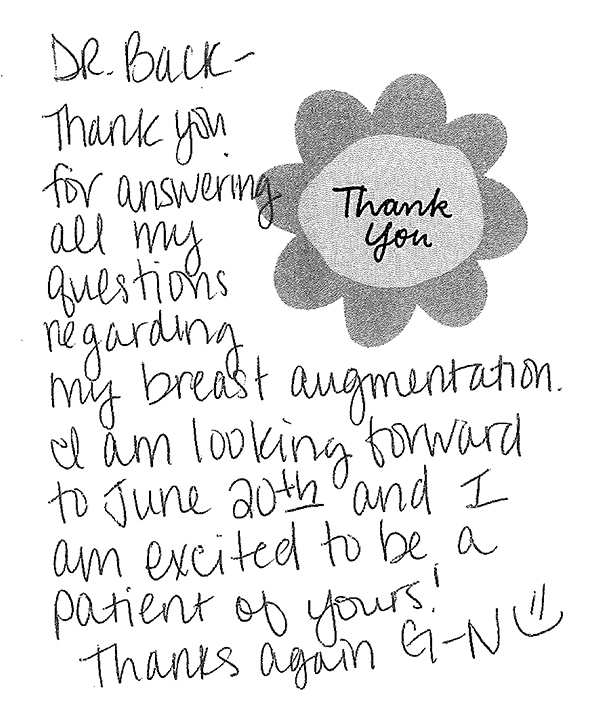 DR. BACK-
Thank you
for answering
all my
questions
regarding
my breast augmentation.
I am looking forward
to June 20th and I
am excited to be a
patient of yours!
Thanks again G-N
Thank
You